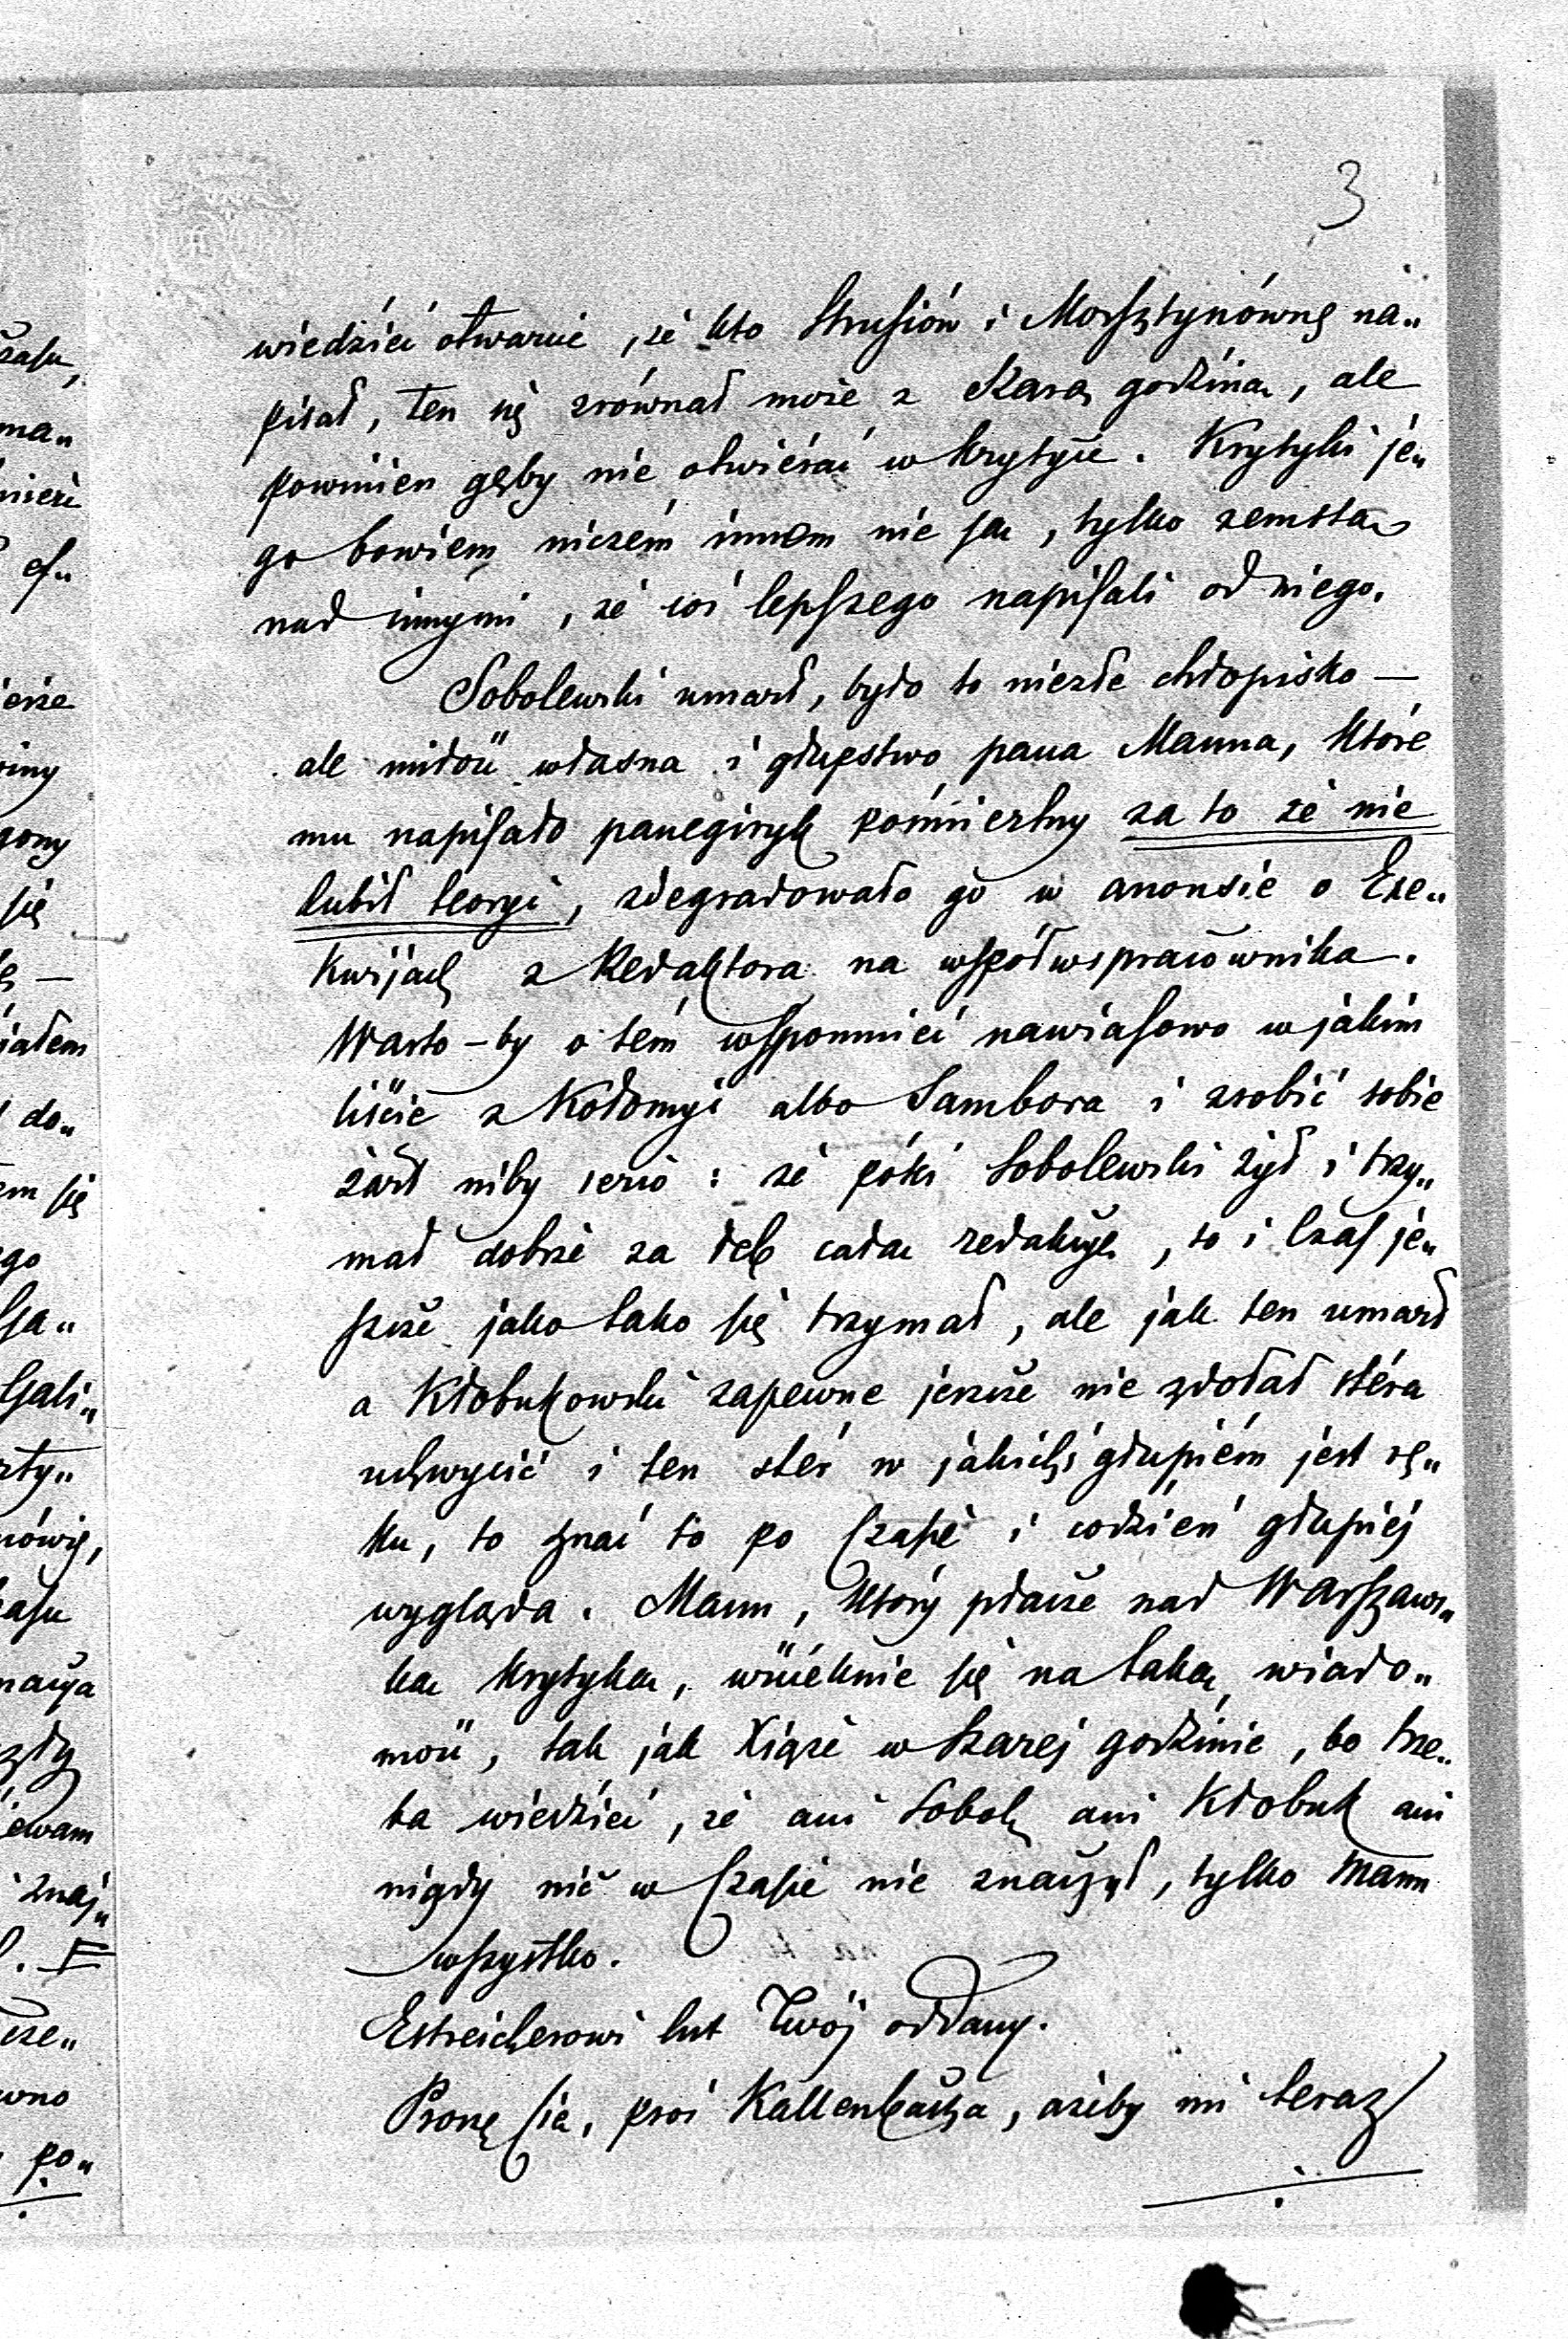 3
wiedzieć otwarcie, że kto Strusiów i Morsztynównę na„
pisał, ten się zrównał może z Szarą godziną, ale
powinien gęby nie otwiérać w krytyce. Krytyki je„
go bowiem niczém innem nie są, tylko zemstą
nad innymi, że coś lepszego napisali od niego.
Sobolewski umarł, było to niezłe chłopisko —
ale miłość własna i głupstwo pana Manna, które
mu napisało panegiryk pośmiertny za to że nie
lubił teoryi, zdegradowało go w anonsie o Exe„
kwijach z Redaktora na współwspracownika.
Warto-by o tém wspomnieć nawiasowo w jakim
liście z Kołomyi albo Sambora i zrobić sobie
żart niby serio: że póki Sobolewski żył i trzy„
mał dobrze za łeb całą redakcyę, to i Czas je„
szcze jako tako się trzymał, ale jak ten umarł
a Kłobukowski zapewne jeszcze nie zdołał stéra
uchwycić i ten stér w jakichś głupiém jest rę„
ku, to znać to po Czasie i codzień głupiéj
wygląda. Mann, który płacze nad Warszaws„
ką krytyką, wścieknie się na taką wiado„
mość, tak jak Xiąże w Szarej godzinie, bo trze„
ba wiedzieć, że ani Sobol, ani Kłobuk ani
nigdy nic w Czasie nie znaczył, tylko Mann
wszystko.
Estreicherowi lut Twój oddany.
Proszę Cię, proś Kallenbacha, ażeby mi teraz